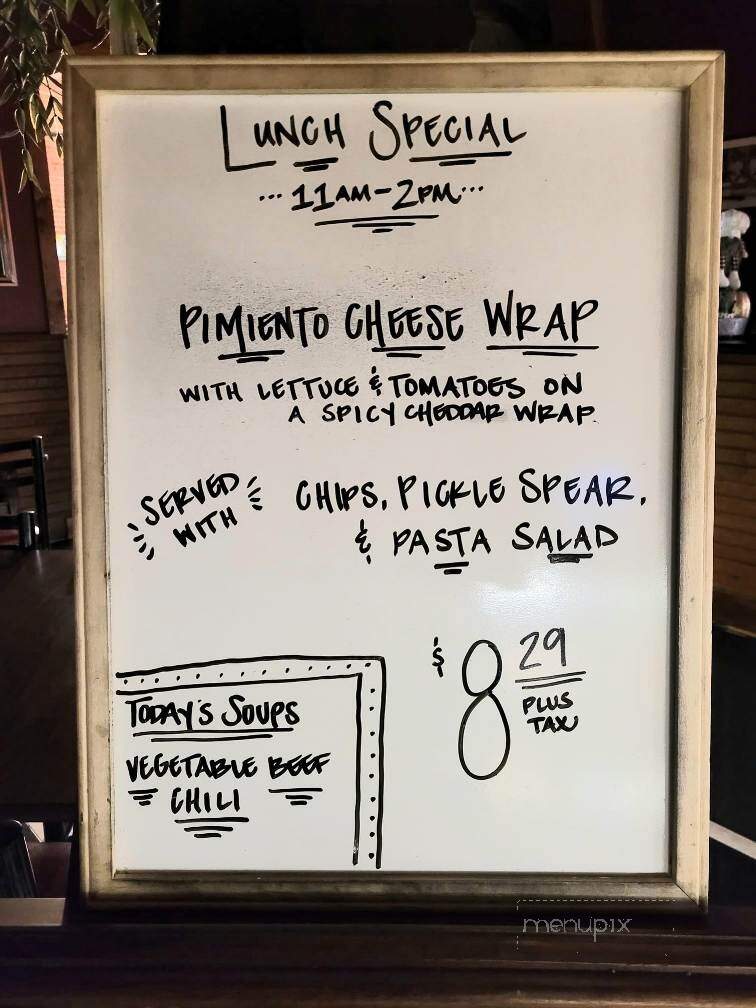 LUNCH SPECIAL
...11AM-2PM...
PIMIENTO CHEESE WRAP
WITH LETTUCE & TOMATOES ON
A SPICY CHEDDAR WRAP
SERVED
WITH
CHIPS, PICKLE SPEAR,
& PASTA SALAD
$8 29
PLUS
TAX
TODAY'S SOUPS
VEGETABLE BEEF
CHILI
menupix